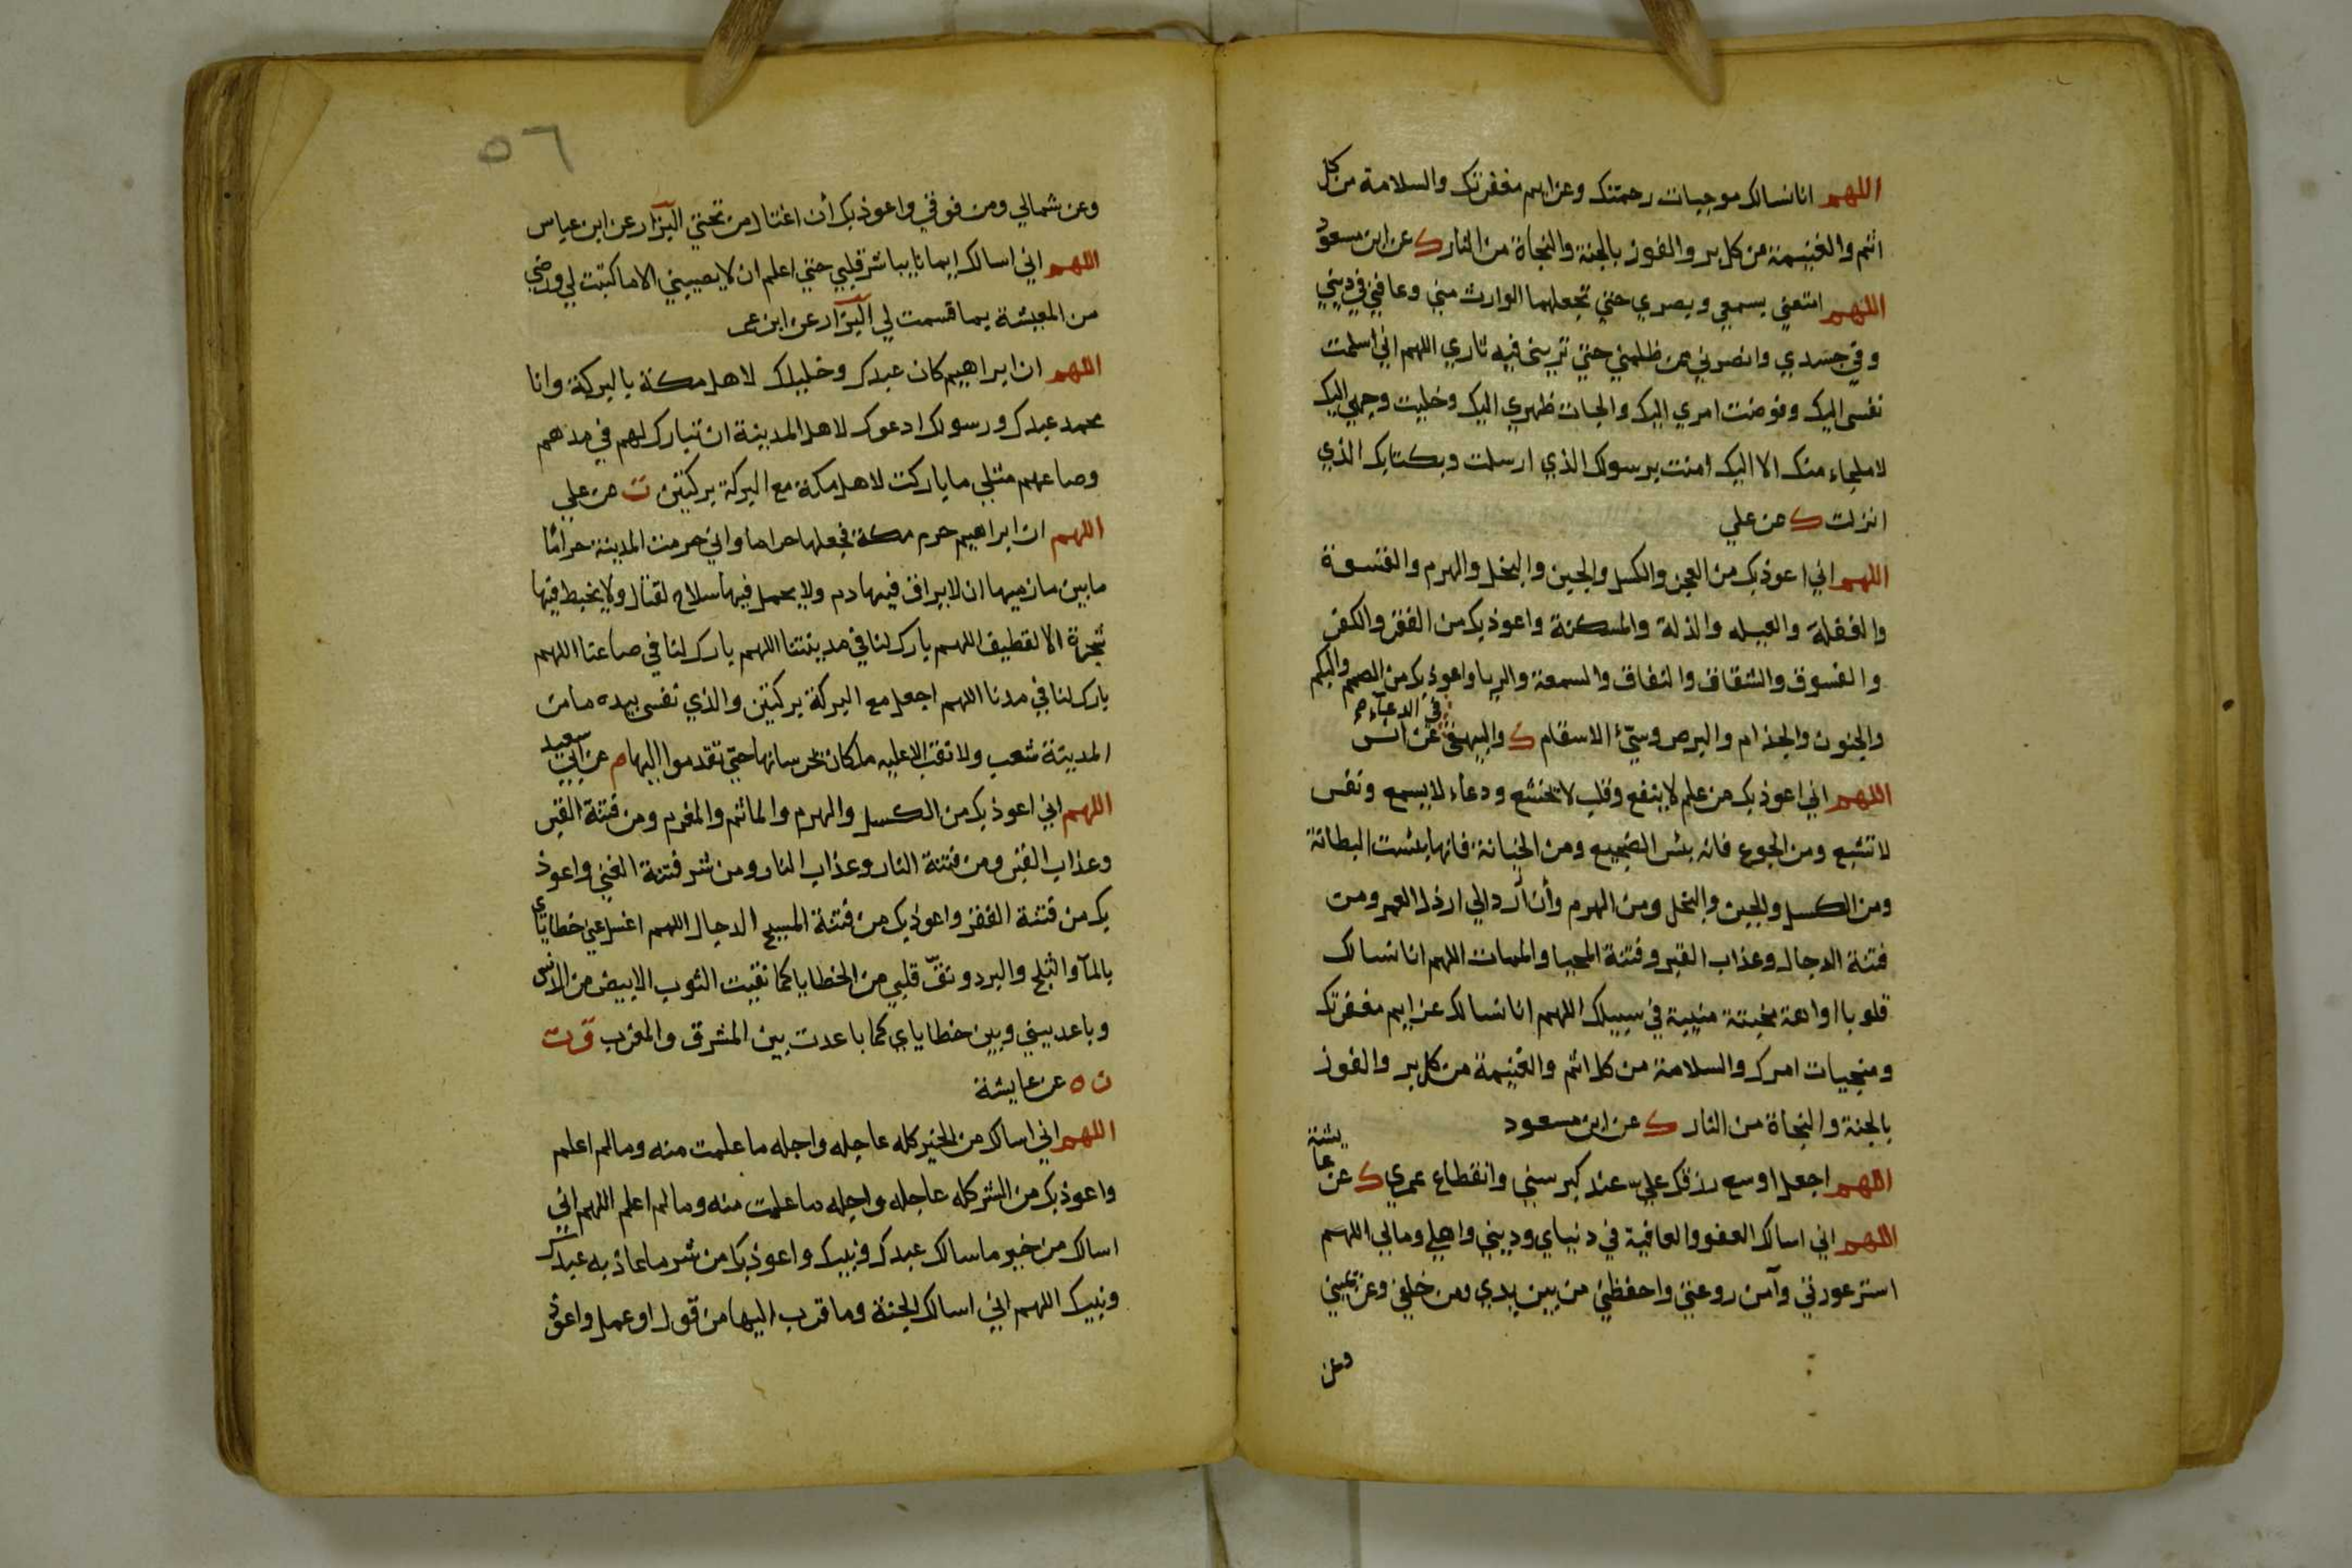 اللهم انا نسالك موجبات رحمتك وعزايم مغفرتك والسلامة من كل
اثم والغنيمة من كل بر والفوز بالجنة والنجاة من النار ك عن ابن مسعود
اللهم امتعني بسمعي وبصري حتي تجعلهما الوارث مني وعافني في ديني
وفي جسدي وانصرني من ظلمني حتي تريني فيه ثاري اللهم اني اسلمت
نفسي اليك وفوضت امري اليك والجات ظهري اليك وخليت وجهي اليك
لا ملجاء منك الا اليك امنت برسولك الذي ارسلت وبكتابك الذي
انزلت ك عن علي
اللهم اني اعوذ بك من العجز والكسل والجبن والبخل والهرم والقسوة
والغفلة والعيله والذلة والمسكنة واعوذ بك من الفقر والكفر
والفسوق والشقاق والنفاق والسمعة والريا واعوذ بك من الصمم والبكم
والجنون والجذام والبرص وسيّء الاسقام ك والبيهقي في الدعاء عن انس
اللهم اني اعوذ بك من علم لا ينفع وقلب لا يخشع ودعاء لا يسمع ونفس
لا تشبع ومن الجوع فانه بئس الضجيع ومن الخيانة فانها بئست البطانة
ومن الكسل والجبن والبخل ومن الهرم وأن أرد الي ارذل العمر ومن
فتنة الدجال وعذاب القبر وفتنة المحيا والممات اللهم انا نسالك
قلوبا اواهة مخبتة منيبة في سبيلك اللهم انا نسالك عزايم مغفرتك
ومنجيات امرك والسلامة من كل اثم والغنيمة من كل بر والفوز
بالجنة والنجاة من النار ك عن ابن مسعود
اللهم اجعل اوسع رزقك عليّ عند كبر سني وانقطاع عمري ك عن عايشة
اللهم اني اسالك العفو والعافية في دنياي وديني واهلي ومالي اللهم
استر عورتي وآمن روعتي واحفظني من بين يدي ومن خلفي وعن يميني
وعن
٥٦
وعن شمالي ومن فوقي واعوذ بك أن اغتال من تحتي البزار عن ابن عباس
اللهم اني اسالك إيمانا يباشر قلبي حتي اعلم ان لا يصيبني الا ما كتبت لي ورضي
من المعيشة بما قسمت لي البزار عن ابن عمر
اللهم ان ابراهيم كان عبدك وخليلك لاهل مكة بالبركة وانا
محمد عبدك ورسولك ادعوك لاهل المدينة ان تبارك لهم في مدهم
وصاعهم مثلي ما باركت لاهل مكة مع البركة بركتين ت عن علي
اللهم ان ابراهيم حرم مكة فجعلها حراما واني حرمت المدينة حرامًا
ما بين مازميها ان لا يراق فيها دم ولا يحمل فيها سلاح لقتال ولا يخبط فيها
شجرة الا لقطيف اللهم بارك لنا في مدينتنا اللهم بارك لنا في صاعنا اللهم
بارك لنا في مدنا اللهم اجعل مع البركة بركتين والذي نفسي بيده ما من
المدينة شعب ولا نقب الا عليه ملكان يحرسانها حتي تقدموا اليها م عن ابي سعيد
اللهم اني اعوذ بك من الكسل والهرم والماثم والمغرم ومن فتنة القبر
وعذاب القبر ومن فتنة النار وعذاب النار ومن شر فتنة الغني واعوذ
بك من فتنة الفقر واعوذ بك من فتنة المسيح الدجال اللهم اغسل عني خطاياي
بالمآ والثلج والبرد ونقّ قلبي من الخطايا كما نقيت الثوب الابيض من الدنس
وباعد بيني وبين خطاياي كما باعدت بين المشرق والمغرب ق ت
ن ه عن عايشة
اللهم اني اسالك من الخير كله عاجله واجله ما علمت منه وما لم اعلم
واعوذ بك من الشر كله عاجله واجله ما علمت منه وما لم اعلم اللهم اني
اسالك من خير ما سالك عبدك ونبيك واعوذ بك من شر ما عاذ به عبدك
ونبيك اللهم اني اسالك الجنة وما قرب اليها من قول او عمل واعوذ